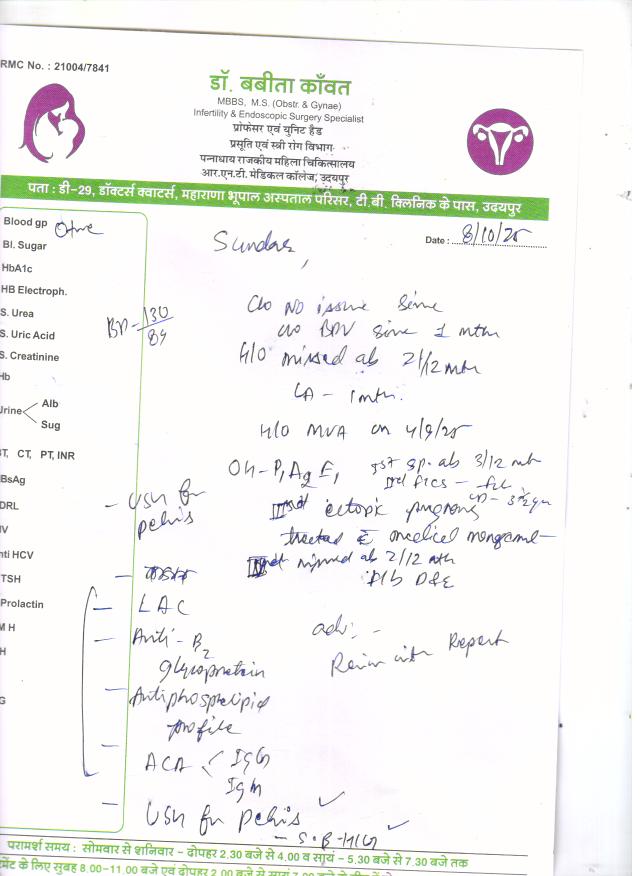 RMC No. : 21004/7841
डॉ. बबीता काँवत
MBBS, M.S. (Obstr. & Gynae)
Infertility & Endoscopic Surgery Specialist
प्रोफेसर एवं युनिट हैड
प्रसूति एवं स्त्री रोग विभाग
पन्नाधाय राजकीय महिला चिकित्सालय
आर.एन.टी. मेडिकल कॉलेज, उदयपुर
पता : डी-29, डॉक्टर्स क्वाटर्स, महाराणा भूपाल अस्पताल परिसर, टी.बी. क्लिनिक के पास, उदयपुर
Blood gp O+ve
Bl. Sugar
HbA1c
HB Electroph.
S. Urea
S. Uric Acid
S. Creatinine
Hb
Urine Alb
Sug
BT, CT, PT, INR
BsAg
DRL
IV
nti HCV
TSH
Prolactin
M H
H
G
Date : 8/10/25
Sundar,
BP - 130/84
C/o NO issue since
C/o BPV since 1 mth
H/O missed ab 2 1/12 mth
LA - 1 mth.
H/O MVA on 4/9/25
OH - P1 A2 E1, Ist sp. ab 3/12 mth
IInd
IIIrd ectopic pregnancy
treated c medical
missed ab 2/12 mth
f/b D&E
- USG for pelvis
- LAC
- Anti - B2 glycoprotein
- Antiphospholipid profile
- ACA < IgG
IgM
- USG for pelvis ✓
- S. B-HCG ✓
adv: -
Review with Report
परामर्श समय : सोमवार से शनिवार - दोपहर 2.30 बजे से 4.00 व सायं - 5.30 बजे से 7.30 बजे तक
के लिए सुबह 8.00-11.00 बजे एवं दोपहर 2.00 बजे से